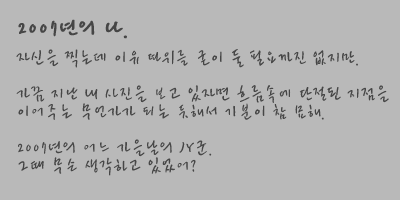 2007년의 나.
자신을 찍는데 이유 따위를 굳이 둘 필요까진 없지만.
가끔 지난 내 사진을 보고 있자면 흐름속에 단절된 지점을
이어주는 무언가가 되는 듯해서 기분이 참 묘해.
2007년의 어느 가을날의 JY군.
그때 무슨 생각하고 있었어?